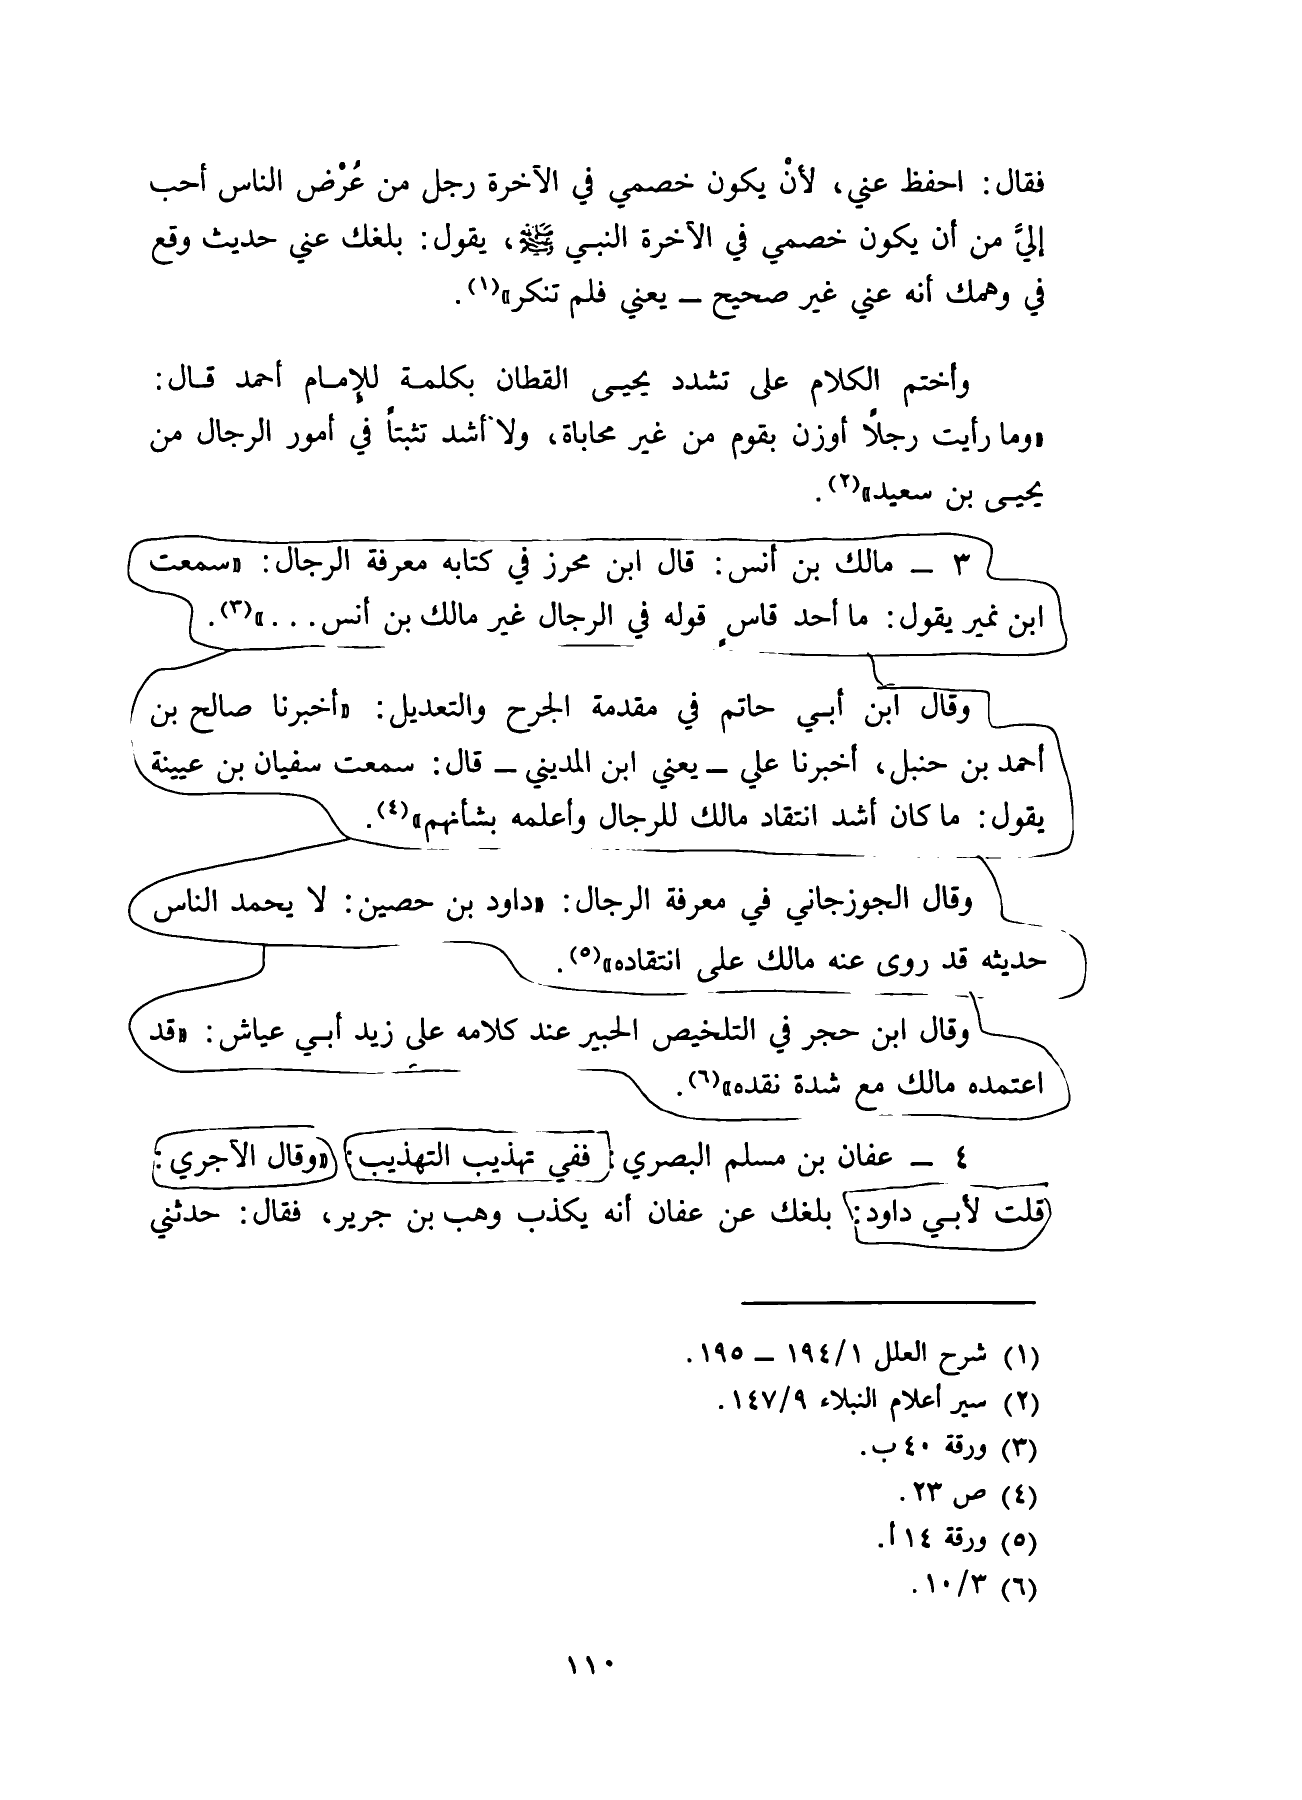 فقال: احفظ عني، لأنْ يكون خصمي في الآخرة رجل من عُرْض الناس أحب
إليَّ من أن يكون خصمي في الآخرة النبـي ﷺ، يقول: بلغك عني حديث وقع
في وهمك أنه عني غير صحيح ــ يعني فلم تنكر»(١).
وأختم الكلام على تشدد يحيـى القطان بكلمة للإمام أحمد قال:
«وما رأيت رجلاً أوزن بقوم من غير محاباة، ولا أشد تثبتاً في أمور الرجال من
يحيـى بن سعيد»(٢).
٣ ــ مالك بن أنس: قال ابن محرز في كتابه معرفة الرجال: «سمعت
ابن نمير يقول: ما أحد قاسٍ قوله في الرجال غير مالك بن أنس...»(٣).
وقال ابن أبـي حاتم في مقدمة الجرح والتعديل: «أخبرنا صالح بن
أحمد بن حنبل، أخبرنا علي ــ يعني ابن المديني ــ قال: سمعت سفيان بن عيينة
يقول: ما كان أشد انتقاد مالك للرجال وأعلمه بشأنهم»(٤).
وقال الجوزجاني في معرفة الرجال: «داود بن حصين: لا يحمد الناس
حديثه قد روى عنه مالك على انتقاده»(٥).
وقال ابن حجر في التلخيص الحبير عند كلامه على زيد أبـي عياش: «قد
اعتمده مالك مع شدة نقده»(٦).
٤ ــ عفان بن مسلم البصري: ففي تهذيب التهذيب: «وقال الآجري:
قلت لأبـي داود: بلغك عن عفان أنه يكذب وهب بن جرير، فقال: حدثني
(١) شرح العلل ١/١٩٤ ــ ١٩٥.
(٢) سير أعلام النبلاء ٩/١٤٧.
(٣) ورقة ٤٠ ب.
(٤) ص ٢٣.
(٥) ورقة ١٤ أ.
(٦) ٣/١٠.
١١٠